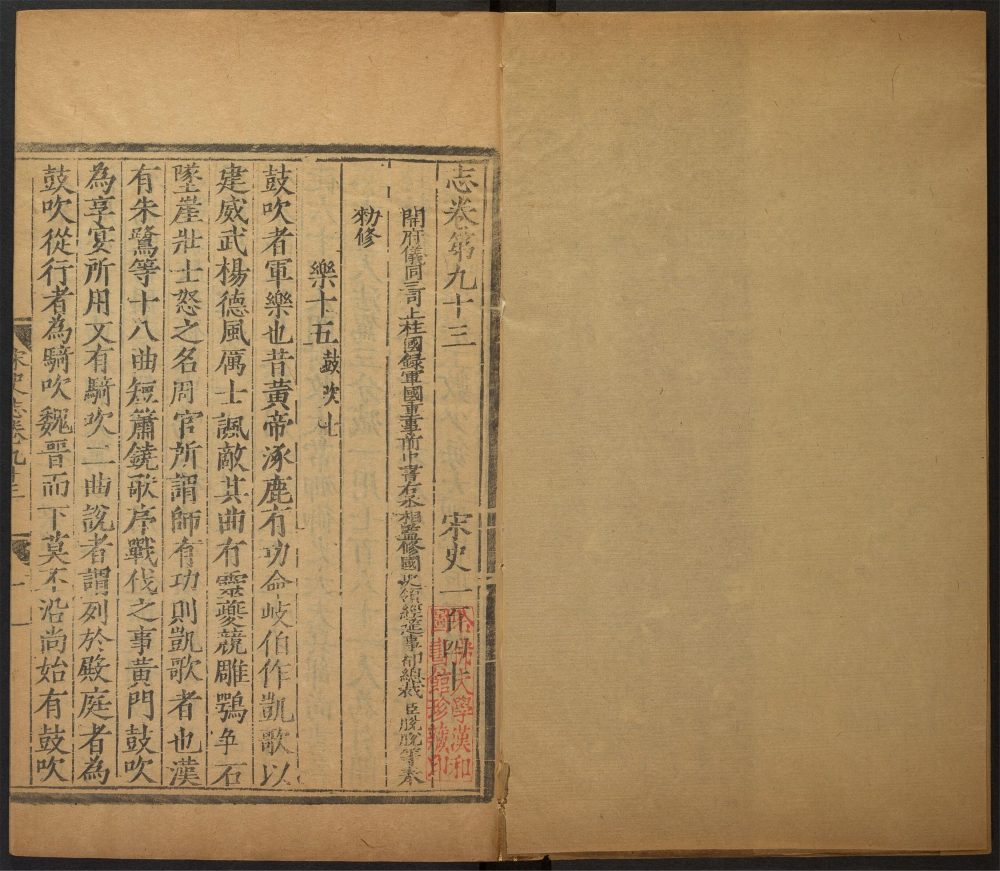 志卷第九十三　宋史一百四十
開府儀同三司上柱國錄軍國重事前中書右丞相監修國史領經筵事都總裁臣脫脫等奉
勑修
樂十五 鼓吹上
鼓吹者軍樂也昔黃帝涿鹿有功命岐伯作凱歌以
建威武楊德風厲士諷敵其曲有靈夔競雕鶚争石
墜崖壯士怒之名周官所謂師有功則凱歌者也漢
有朱鷺等十八曲短簫鐃歌序戰伐之事黃門鼓吹
為享宴所用又有騎吹二曲說者謂列於殿庭者為
鼓吹從行者為騎吹魏晋而下莫不沿尚始有鼓吹
宋史志卷九十三
一
哈佛大學漢和
圖書館珍藏印